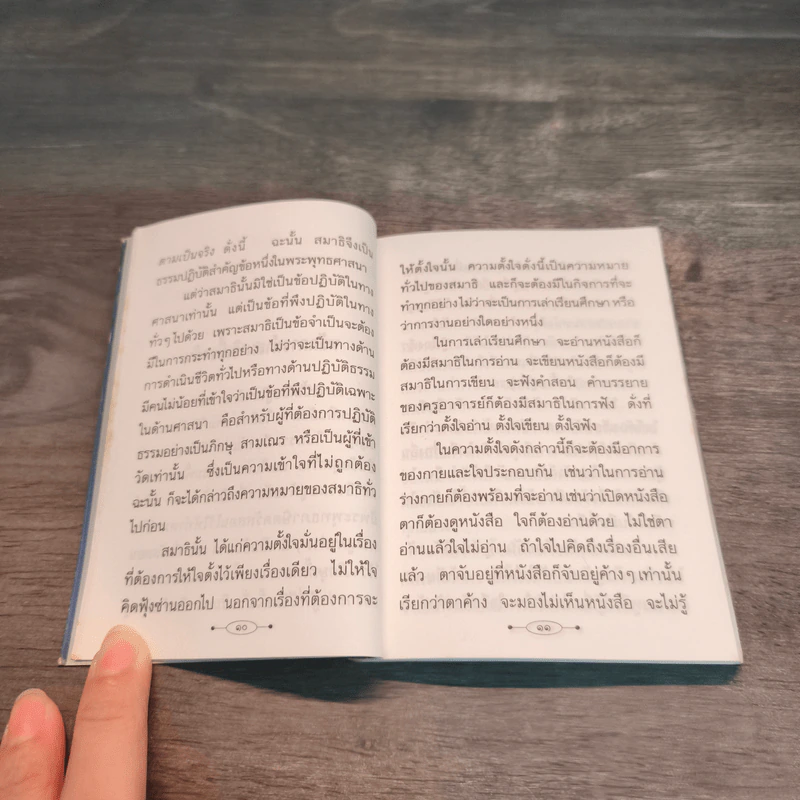 ตามเป็นจริง ดังนี้ ฉะนั้น สมาธิจึงเป็น
ธรรมปฏิบัติสำคัญข้อหนึ่งในพระพุทธศาสนา
แต่ว่าสมาธินั้นมิใช่เป็นข้อปฏิบัติในทาง
ศาสนาเท่านั้น แต่เป็นข้อที่พึงปฏิบัติในทาง
ทั่วๆ ไปด้วย เพราะสมาธิเป็นข้อจำเป็นจะต้อง
มีในการกระทำทุกอย่าง ไม่ว่าจะเป็นทางด้าน
การดำเนินชีวิตทั่วไปหรือทางด้านปฏิบัติธรรม
มีคนไม่น้อยที่เข้าใจว่าเป็นข้อที่พึงปฏิบัติเฉพาะ
ในด้านศาสนา คือสำหรับผู้ที่ต้องการปฏิบัติ
ธรรมอย่างเป็นภิกษุ สามเณร หรือเป็นผู้ที่เข้า
วัดเท่านั้น ซึ่งเป็นความเข้าใจที่ไม่ถูกต้อง
ฉะนั้น ก็จะได้กล่าวถึงความหมายของสมาธิทั่ว
ไปก่อน
สมาธินั้น ได้แก่ความตั้งใจมั่นอยู่ในเรื่อง
ที่ต้องการให้ใจตั้งไว้เพียงเรื่องเดียว ไม่ให้ใจ
คิดฟุ้งซ่านออกไป นอกจากเรื่องที่ต้องการจะ
๑๐
ให้ตั้งใจนั้น ความตั้งใจดั่งนี้เป็นความหมาย
ทั่วไปของสมาธิ และก็จะต้องมีในกิจการที่จะ
ทำทุกอย่างไม่ว่าจะเป็นการเล่าเรียนศึกษา หรือ
ว่าการงานอย่างใดอย่างหนึ่ง
ในการเล่าเรียนศึกษา จะอ่านหนังสือก็
ต้องมีสมาธิในการอ่าน จะเขียนหนังสือก็ต้องมี
สมาธิในการเขียน จะฟังคำสอน คำบรรยาย
ของครูอาจารย์ก็ต้องมีสมาธิในการฟัง ดั่งที่
เรียกว่าตั้งใจอ่าน ตั้งใจเขียน ตั้งใจฟัง
ในความตั้งใจดังกล่าวนี้ก็จะต้องมีอาการ
ของกายและใจประกอบกัน เช่นว่าในการอ่าน
ร่างกายก็ต้องพร้อมที่จะอ่าน เช่นว่าเปิดหนังสือ
ตาก็ต้องดูหนังสือ ใจก็ต้องอ่านด้วย ไม่ใช่ตา
อ่านแล้วใจไม่อ่าน ถ้าใจไปคิดถึงเรื่องอื่นเสีย
แล้ว ตาจับอยู่ที่หนังสือก็จับอยู่ค้างๆ เท่านั้น
เรียกว่าตาค้าง จะมองไม่เห็นหนังสือ จะไม่รู้
๑๑